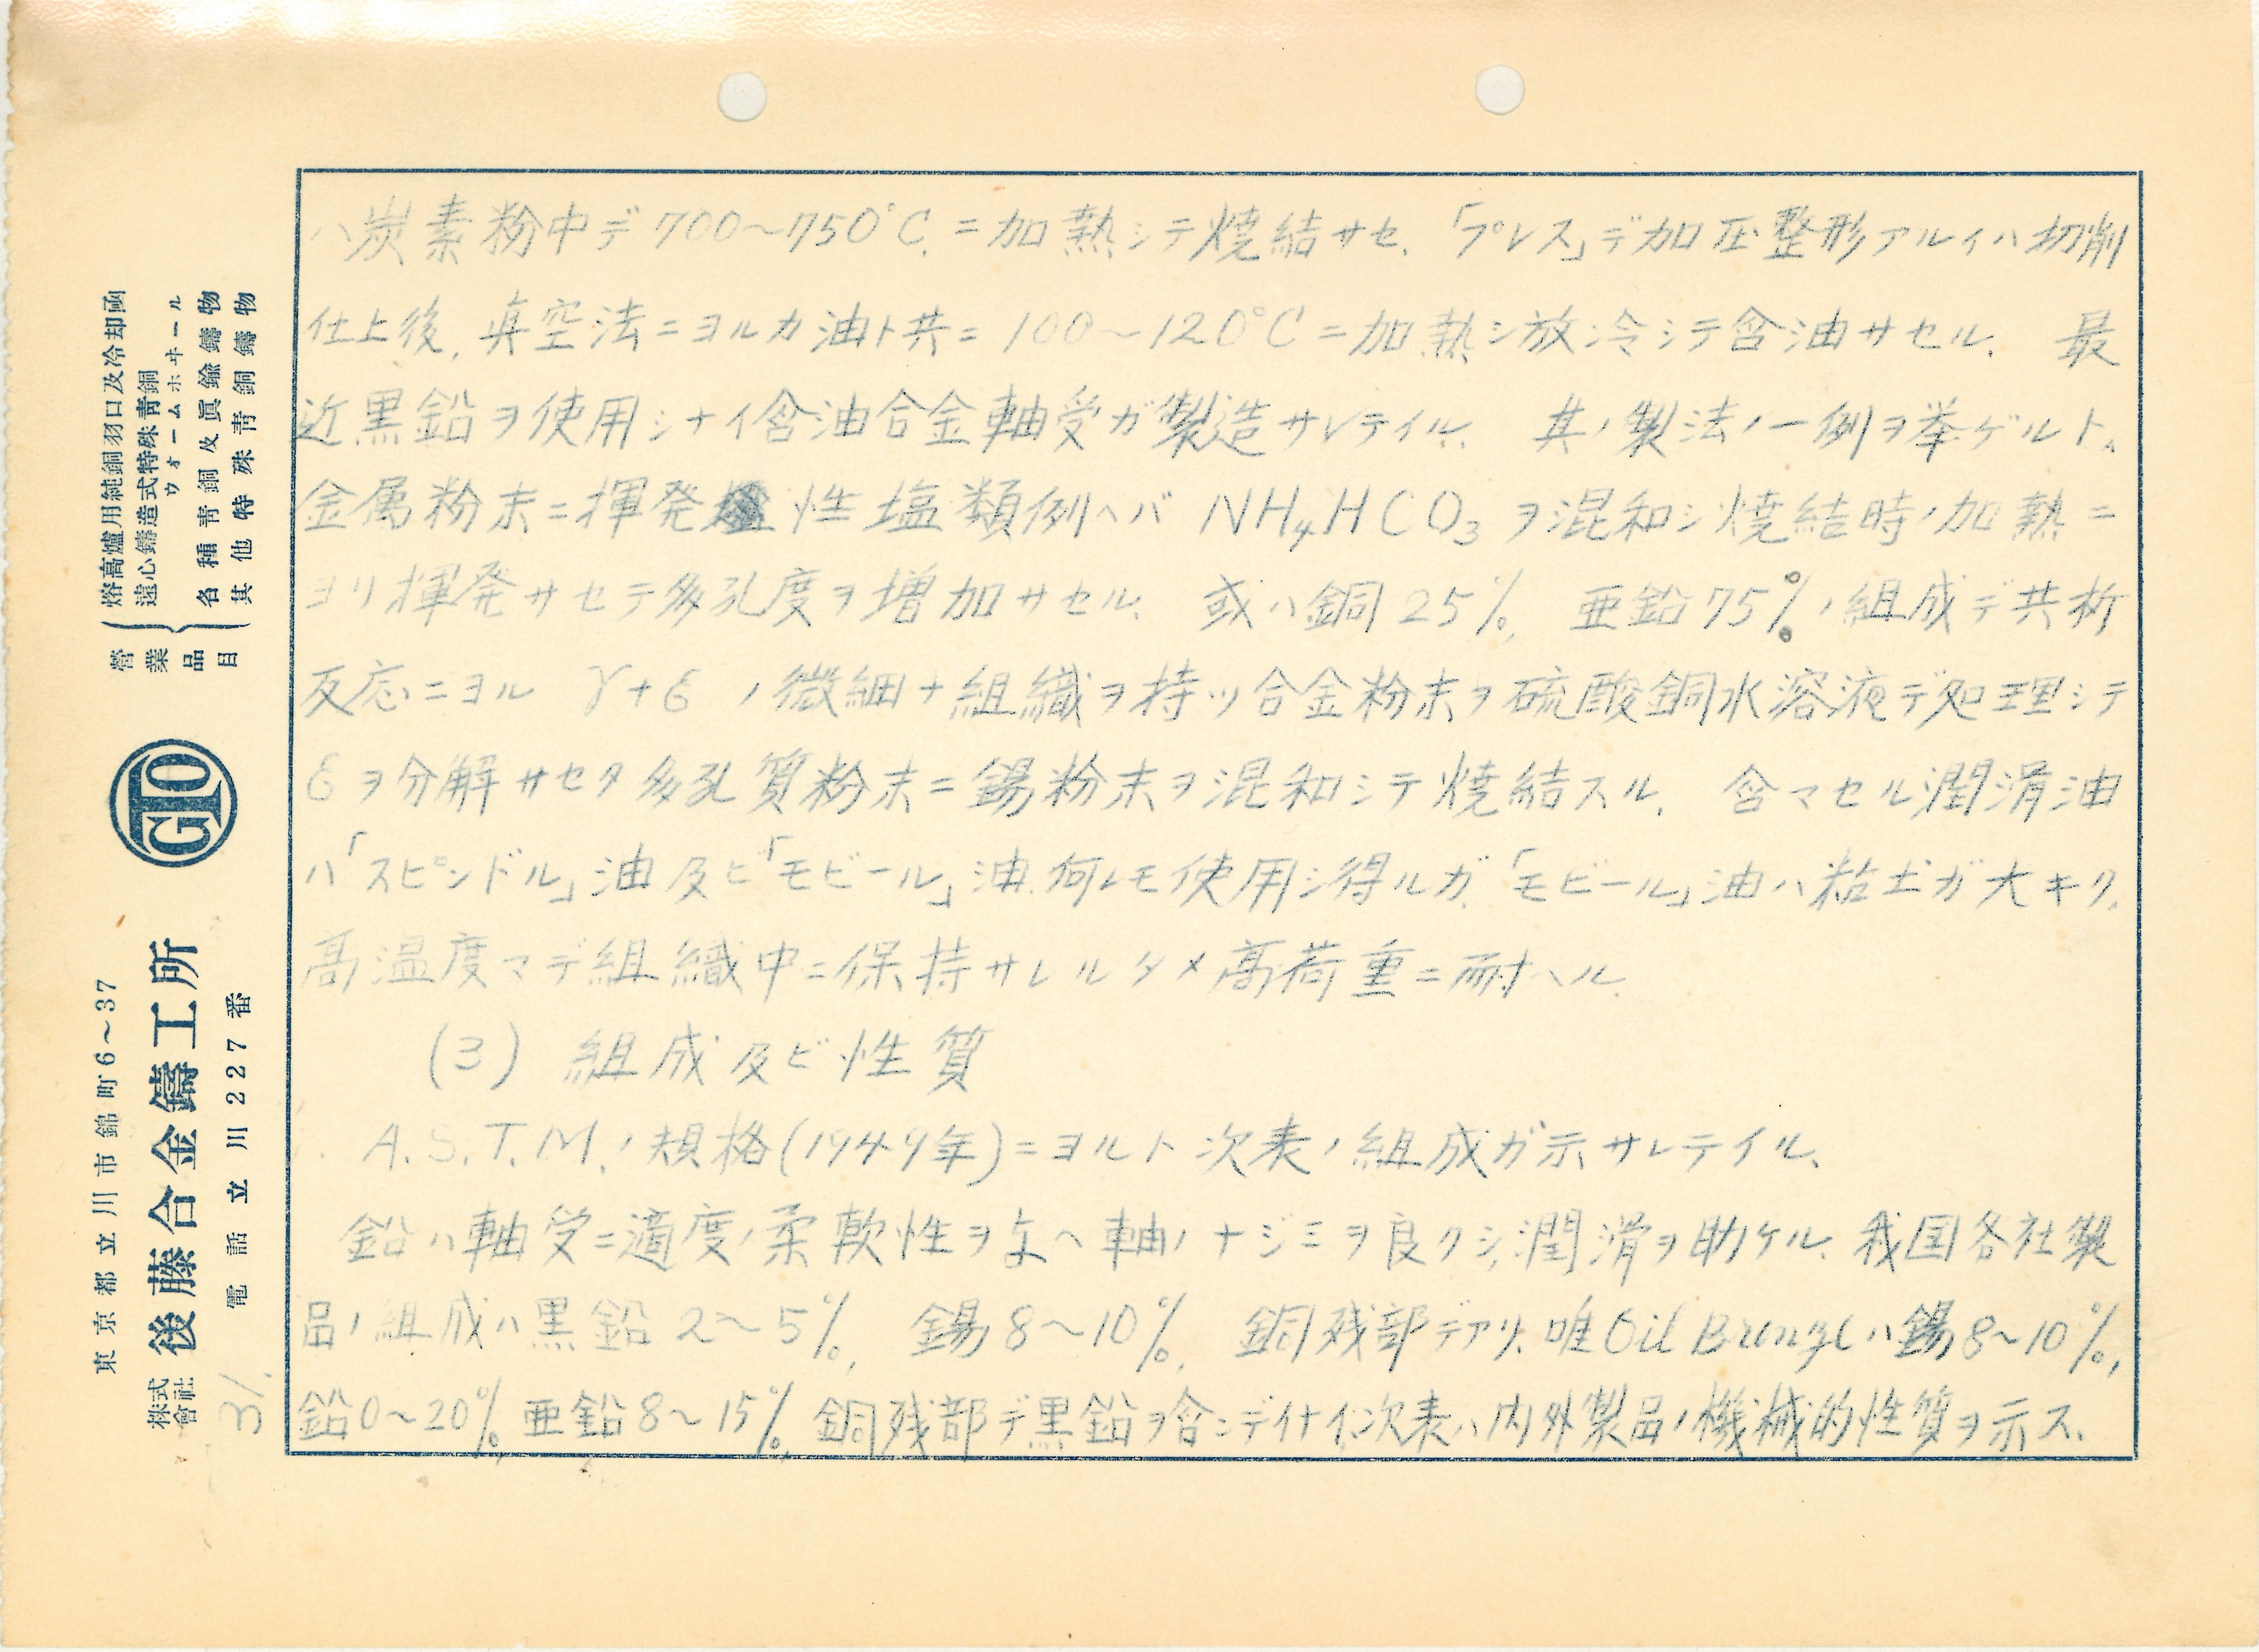 ハ炭素粉中デ700〜750°C.ニ加熱シテ焼結サセ、「プレス」デ加圧整形アルイハ切削
仕上後、真空法ニヨルカ油ト共ニ100〜120°Cニ加熱シ放冷シテ含油サセル、 最
近黒鉛ヲ使用シナイ含油合金軸受ガ製造サレテイル、 其ノ製法ノ一例ヲ挙ゲルト、
金属粉末ニ揮発性塩類例ヘバ NH4HCO3 ヲ混和シ焼結時ノ加熱ニ
ヨリ揮発サセテ多孔度ヲ増加サセル、 或ハ銅25%、 亜鉛75%ノ組成デ共析
反応ニヨル γ+ε ノ微細ナ組織ヲ持ツ合金粉末ヲ硫酸銅水溶液デ処理シテ
εヲ分解サセタ多孔質粉末ニ錫粉末ヲ混和シテ焼結スル、 含マセル潤滑油
ハ「スピンドル」油及ビ「モビール」油何レモ使用シ得ルガ、「モビール」油ハ粘土ガ大キク、
高温度マデ組織中ニ保持サレルタメ高荷重ニ耐ヘル、
(3) 組成及ビ性質
A.S.T.M.ノ規格(1949年)ニヨルト次表ノ組成ガ示サレテイル、
鉛ハ軸受ニ適度ノ柔軟性ヲ与ヘ軸ノナジミヲ良クシ、潤滑ヲ助ケル、我国各社製
品ノ組成ハ黒鉛2〜5%、 錫8〜10%、 銅残部デアリ、唯Oil Bronzeハ錫8〜10%、
鉛0〜20%、亜鉛8〜15%、銅残部デ黒鉛ヲ含ンデイナイ、次表ハ内外製品ノ機械的性質ヲ示ス、
營業品目
熔高爐用純銅羽口及冷却函
遠心鑄造式特殊青銅
ウォームホヰール
各種青銅及眞鍮鑄物
其他特殊青銅鑄物
GTO
東京都立川市錦町6〜37
株式會社 後藤合金鑄工所
電話立川227番
31.